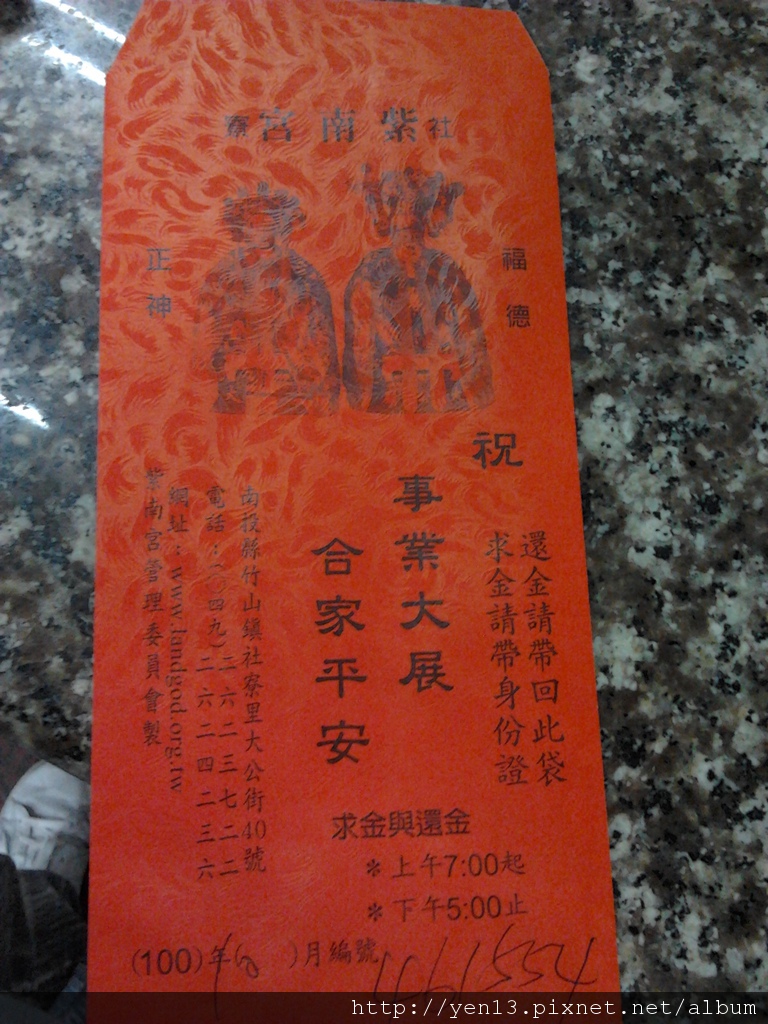 社寮紫南宮
福德
正神
祝
事業大展
合家平安
還金請帶回此袋
求金請帶身份證
南投縣竹山鎮社寮里大公街40號
電話：(〇四九)二六二三七二二
二六二四二三六
網址：www.landgod.org.tw
紫南宮管理委員會製
求金與還金
＊上午7:00起
＊下午5:00止
(100)年 )月編號
http://yen13.pixnet.net/album